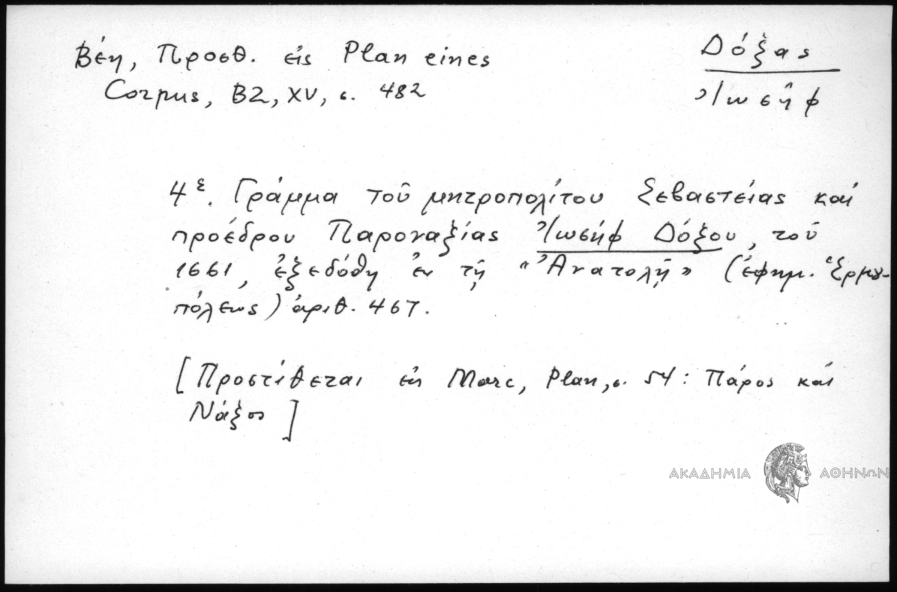 Βέη, Προσθ. εἰς Plan eines
Corpus, BZ, XV, σ. 482
Δόξας
Ἰωσὴφ
4ε. Γράμμα τοῦ μητροπολίτου Σεβαστείας καὶ
προέδρου Παροναξίας Ἰωσὴφ Δόξου, τοῦ
1661, ἐξεδόθη ἐν τῇ «Ἀνατολῇ» (ἐφημ. Ἑρμου-
πόλεως) ἀριθ. 467.
[Προστίθεται εἰς Marc, Plan, σ. 54: Πάρος καὶ
Νάξος]
ΑΚΑΔΗΜΙΑ ΑΘΗΝΩΝ